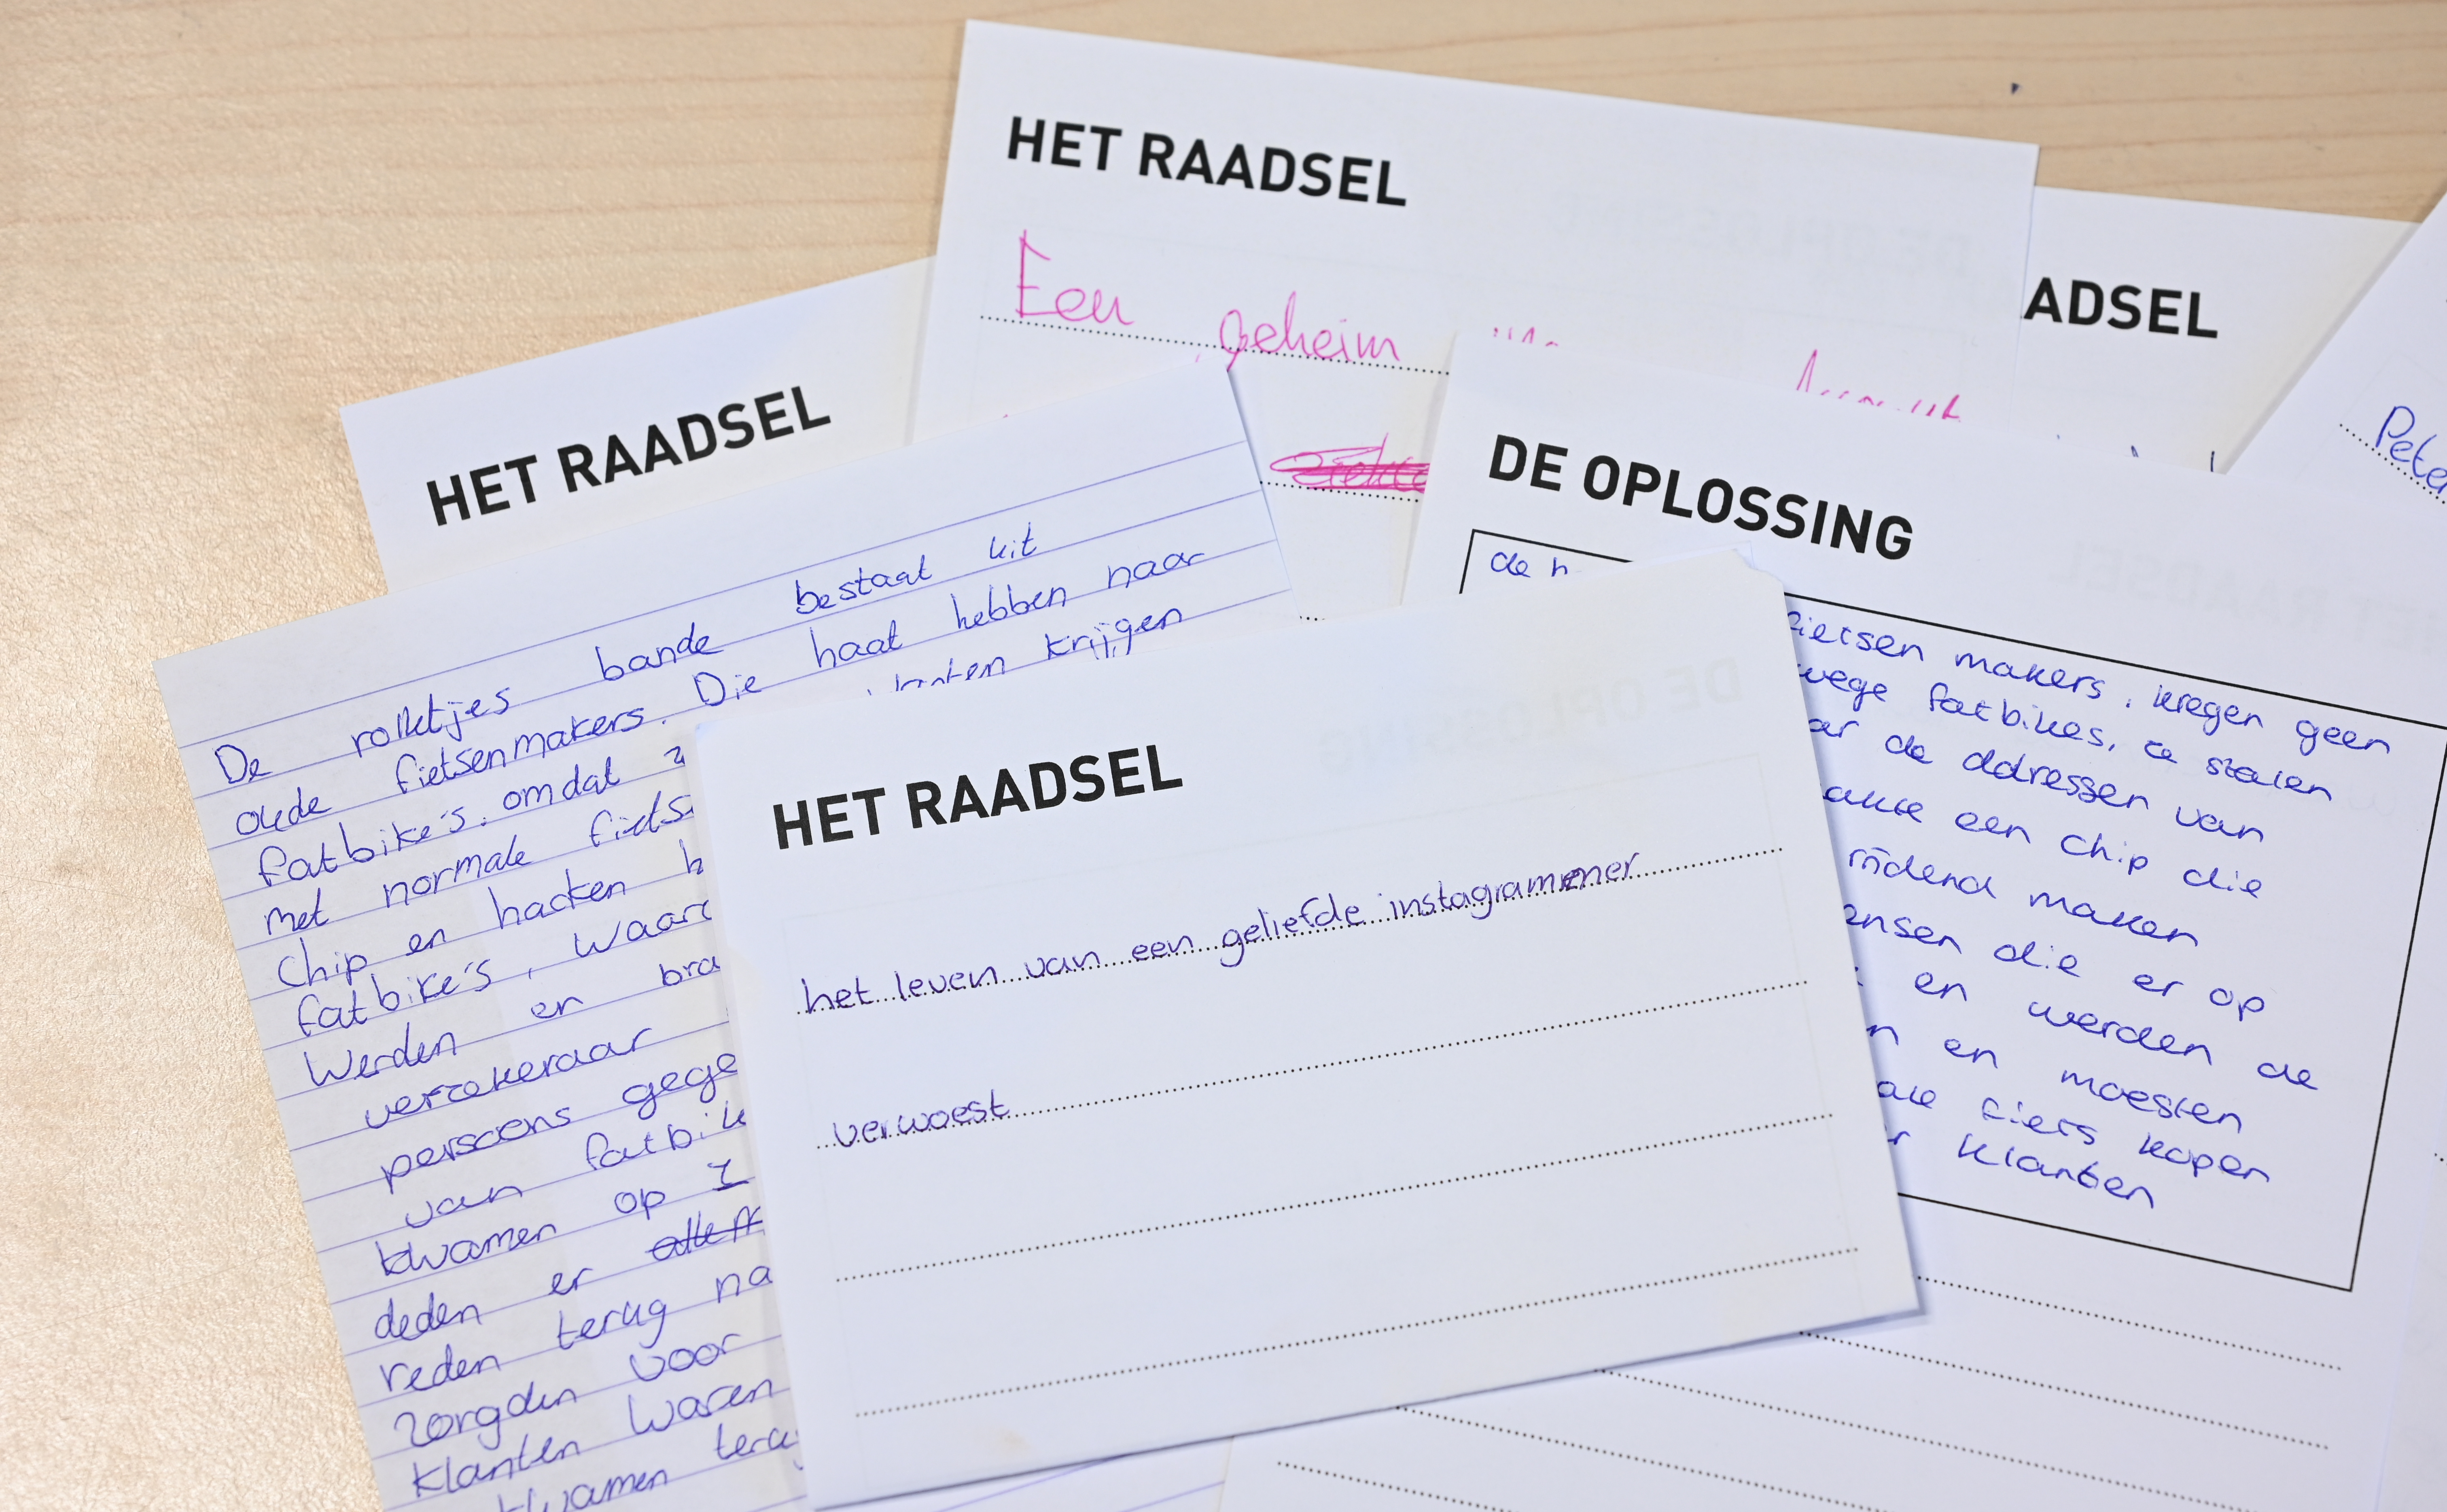 HET RAADSEL
Een geheim
ADSEL
HET RAADSEL
De rolletjes bande bestaat uit
oude fietsenmakers. Die haat hebben naar
fatbike's. omdat krijgen
met normale
chip en hacken
fatbike's, waar
werden er
verzekeraar
persoons
van
kwamen op
deden er
reden terug
zorgden voor
klanten waren
kwamen
DE OPLOSSING
de
fietsen makers. kregen geen
wege fatbikes, ze stalen
de ddressen van
een chip die
rijdend maken
ensen die er op
en werden de
en moesten
fiets kopen
klanten
HET RAADSEL
het leven van een geliefde instagrammer
verwoest